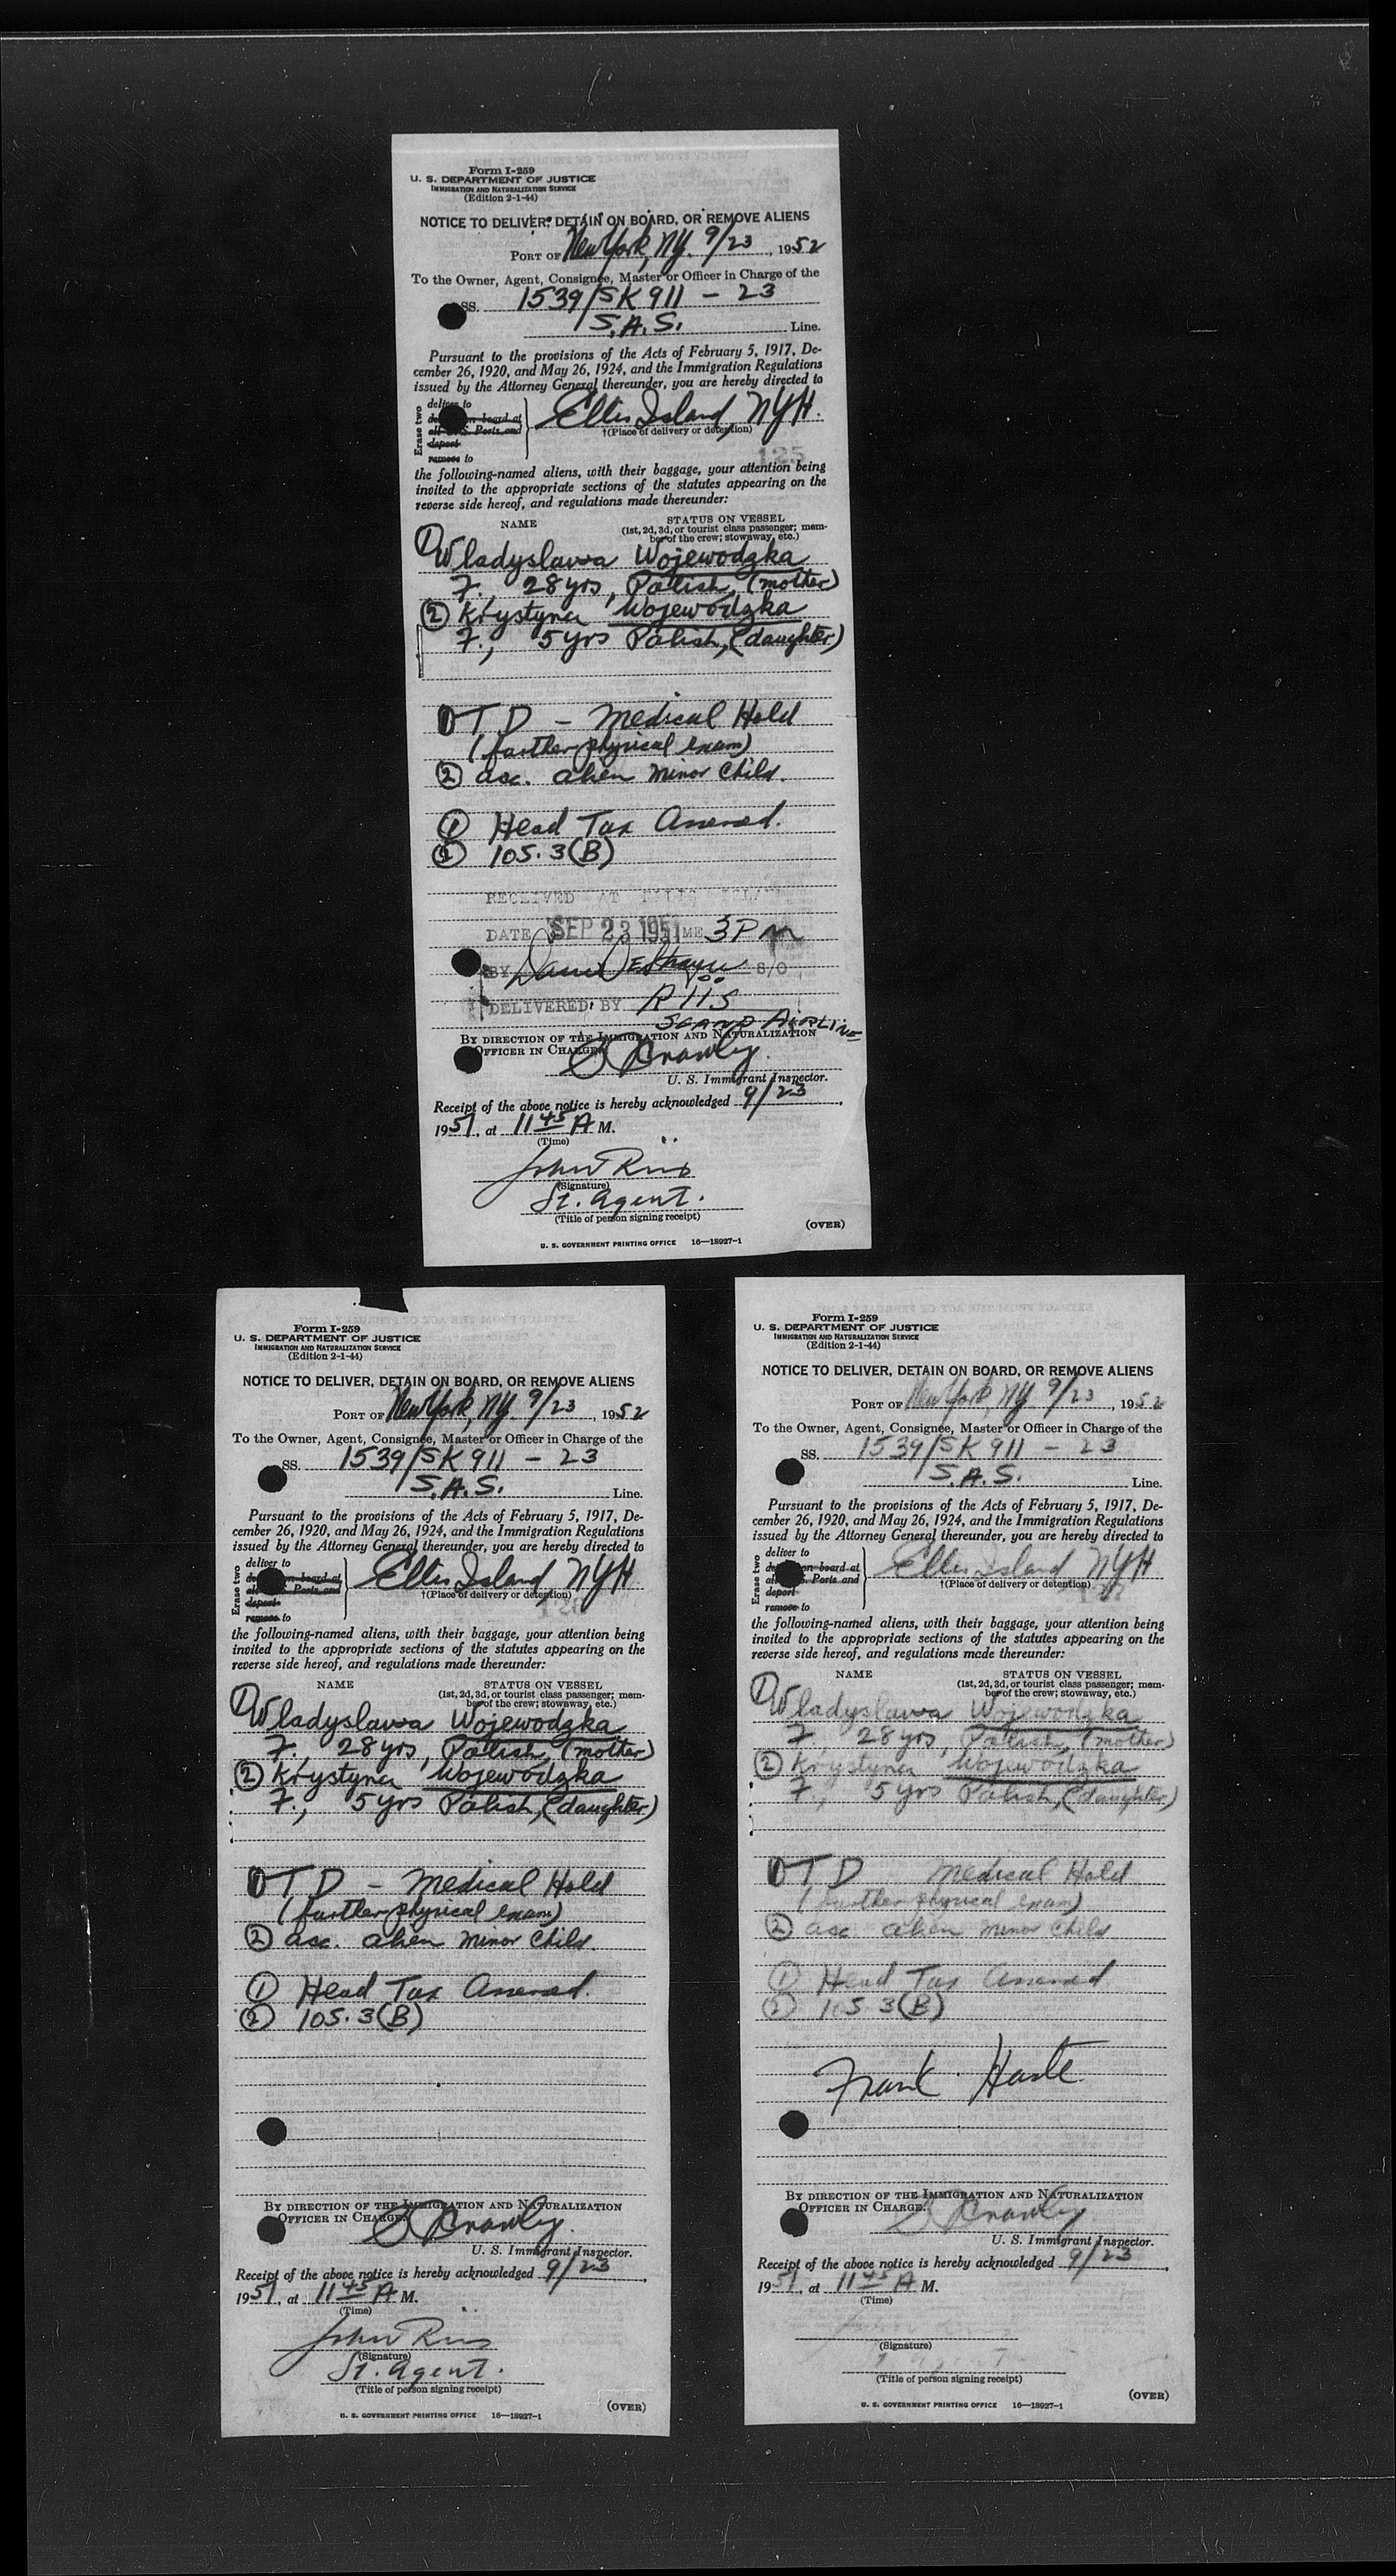 Form I-259
U. S. DEPARTMENT OF JUSTICE
IMMIGRATION AND NATURALIZATION SERVICE
(Edition 2-1-44)
NOTICE TO DELIVER, DETAIN ON BOARD, OR REMOVE ALIENS
PORT OF New York, NY. 9/23, 1952
To the Owner, Agent, Consignee, Master or Officer in Charge of the
SS. 1539/SK 911 - 23
S.A.S. Line.
Pursuant to the provisions of the Acts of February 5, 1917, De-
cember 26, 1920, and May 26, 1924, and the Immigration Regulations
issued by the Attorney General thereunder, you are hereby directed to
Erase two
deliver to
on board at
Ports and
deport
remove to
Ellis Island, NYH.
†(Place of delivery or detention)
125
the following-named aliens, with their baggage, your attention being
invited to the appropriate sections of the statutes appearing on the
reverse side hereof, and regulations made thereunder:
NAME STATUS ON VESSEL
(1st, 2d, 3d, or tourist class passenger; mem-
ber of the crew; stowaway, etc.)
① Wladyslawa Wojewodzka
F., 28 yrs, Polish, (mother)
② Krystyna Wojewodzka
F., 5 yrs Polish, (daughter)
① T D - Medical Hold
(further physical exam)
② acc. alien minor child.
① Head Tax Assessed.
② 105.3(B)
RECEIVED AT ELLIS ISLAND
DATE SEP 23 1951 ME 3 PM
BY S/O
DELIVERED BY RIIS
SCAND AIRLINE
BY DIRECTION OF THE IMMIGRATION AND NATURALIZATION
OFFICER IN CHARGE.
Crawley.
U. S. Immigrant Inspector.
Receipt of the above notice is hereby acknowledged 9/23,
1951, at 11 45 A M.
(Time)
John Riis
(Signature)
St. Agent.
(Title of person signing receipt)
(OVER)
U. S. GOVERNMENT PRINTING OFFICE 16—18927-1
Form I-259
U. S. DEPARTMENT OF JUSTICE
IMMIGRATION AND NATURALIZATION SERVICE
(Edition 2-1-44)
NOTICE TO DELIVER, DETAIN ON BOARD, OR REMOVE ALIENS
PORT OF New York, NY. 9/23, 1952
To the Owner, Agent, Consignee, Master or Officer in Charge of the
SS. 1539/SK 911 - 23
S.A.S. Line.
Pursuant to the provisions of the Acts of February 5, 1917, De-
cember 26, 1920, and May 26, 1924, and the Immigration Regulations
issued by the Attorney General thereunder, you are hereby directed to
Erase two
deliver to
on board at
Ports and
deport
remove to
Ellis Island, NYH
†(Place of delivery or detention)
the following-named aliens, with their baggage, your attention being
invited to the appropriate sections of the statutes appearing on the
reverse side hereof, and regulations made thereunder:
NAME STATUS ON VESSEL
(1st, 2d, 3d, or tourist class passenger; mem-
ber of the crew; stowaway, etc.)
① Wladyslawa Wojewodzka
F., 28 yrs, Polish, (mother)
② Krystyna Wojewodzka
F., 5 yrs Polish, (daughter)
① T D - Medical Hold
(further physical exam)
② acc. alien minor child.
① Head Tax Assessed.
② 105.3(B)
BY DIRECTION OF THE IMMIGRATION AND NATURALIZATION
OFFICER IN CHARGE.
Crawley.
U. S. Immigrant Inspector.
Receipt of the above notice is hereby acknowledged 9/23,
1951, at 11 45 A M.
(Time)
John Riis
(Signature)
St. Agent.
(Title of person signing receipt)
(OVER)
U. S. GOVERNMENT PRINTING OFFICE 16—18927-1
Form I-259
U. S. DEPARTMENT OF JUSTICE
IMMIGRATION AND NATURALIZATION SERVICE
(Edition 2-1-44)
NOTICE TO DELIVER, DETAIN ON BOARD, OR REMOVE ALIENS
PORT OF New York, NY 9/23, 1952
To the Owner, Agent, Consignee, Master or Officer in Charge of the
SS. 1539/SK 911 - 23
S.A.S. Line.
Pursuant to the provisions of the Acts of February 5, 1917, De-
cember 26, 1920, and May 26, 1924, and the Immigration Regulations
issued by the Attorney General thereunder, you are hereby directed to
Erase two
deliver to
on board at
Ports and
deport
remove to
Ellis Island, NYH
†(Place of delivery or detention)
the following-named aliens, with their baggage, your attention being
invited to the appropriate sections of the statutes appearing on the
reverse side hereof, and regulations made thereunder:
NAME STATUS ON VESSEL
(1st, 2d, 3d, or tourist class passenger; mem-
ber of the crew; stowaway, etc.)
① Wladyslawa Wojewodzka
F. 28 yrs, Polish, (mother)
② Krystyna Wojewodzka
F., 5 yrs Polish, (daughter)
① T D Medical Hold
(further physical exam)
② acc. alien minor child
① Head Tax Assessed
② 105.3(B)
Frank Haste
BY DIRECTION OF THE IMMIGRATION AND NATURALIZATION
OFFICER IN CHARGE.
Crawley
U. S. Immigrant Inspector.
Receipt of the above notice is hereby acknowledged 9/23,
1951, at 11 45 A M.
(Time)
(Signature)
(Title of person signing receipt)
(OVER)
U. S. GOVERNMENT PRINTING OFFICE 16—18927-1